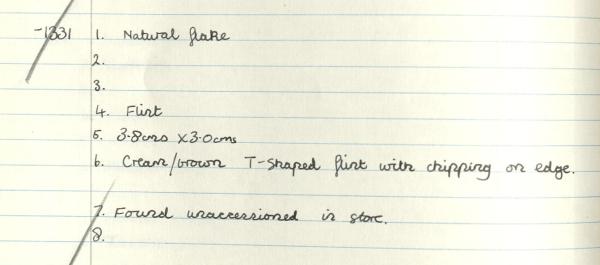 -1331 1. Natural flake
2.
3.
4. Flint
5. 3.8cms x 3.0cms
6. Cream/brown T-shaped flint with chipping on edge.
7. Found unaccessioned in store.
8.